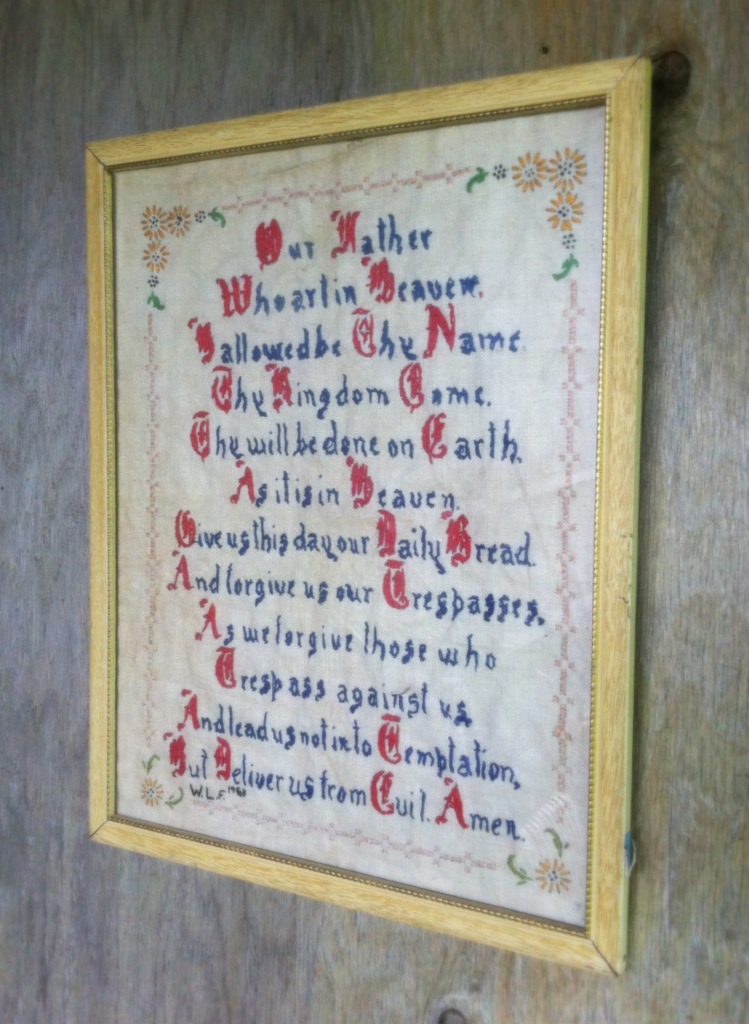 Our Father
Who art in Heaven.
Hallowed be Thy Name.
Thy Kingdom Come.
Thy will be done on Earth.
As it is in Heaven.
Give us this day our Daily Bread.
And forgive us our Trespasses.
As we forgive those who
Trespass against us.
And lead us not into Temptation,
But Deliver us from Evil. Amen.